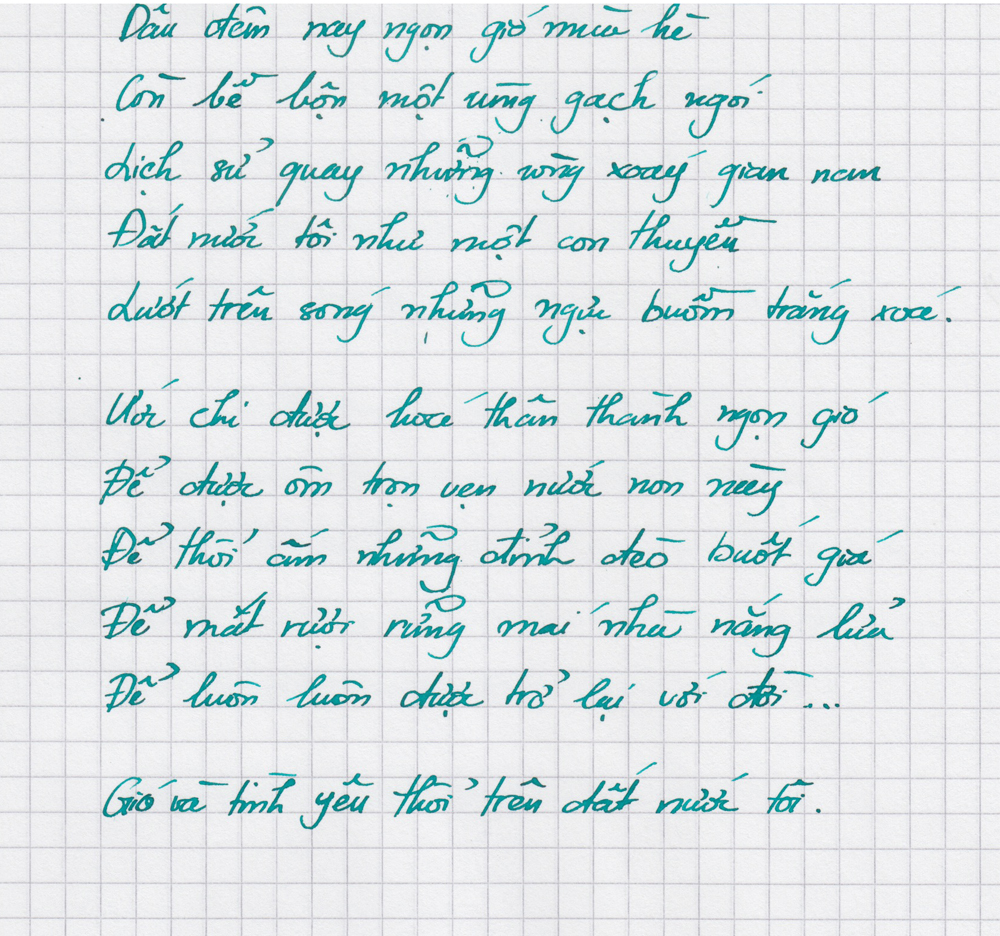 Dẫu đêm nay ngọn gió mùa hè
Còn bề bộn một vùng gạch ngói
Lịch sử quay những vòng xoáy gian nan
Đất nước tôi như một con thuyền
Lướt trên sóng những ngực buồm trắng xoá.
Ước chi được hoá thân thành ngọn gió
Để được ôm trọn vẹn nước non này
Để thổi ấm những đỉnh đèo buốt giá
Để mát rượi rừng mái nhà nắng lửa
Để luôn luôn được trở lại với đời...
Gió và tình yêu thổi trên đất nước tôi.